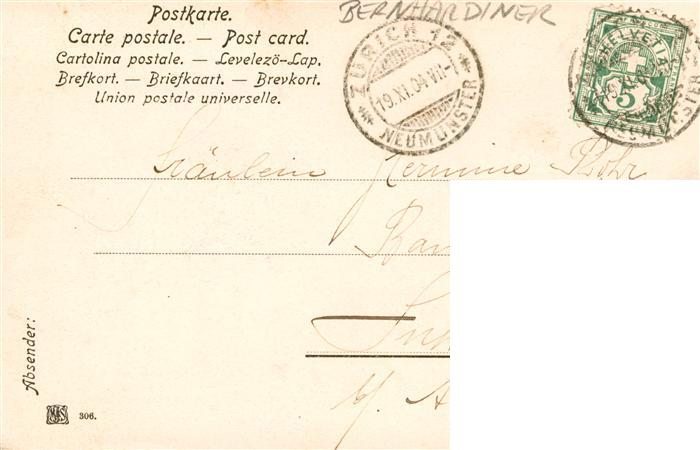 Postkarte.
Carte postale. — Post card.
Cartolina postale. — Levelezö-Lap.
Brefkort. — Briefkaart. — Brevkort.
Union postale universelle.
BERNHARDINER
ZÜRICH 12
19.XI.04.VII-1
NEUMÜNSTER
HELVETIA
5
NEUMÜNSTER
Fräulein Hermine Rohr
Absender:
306.